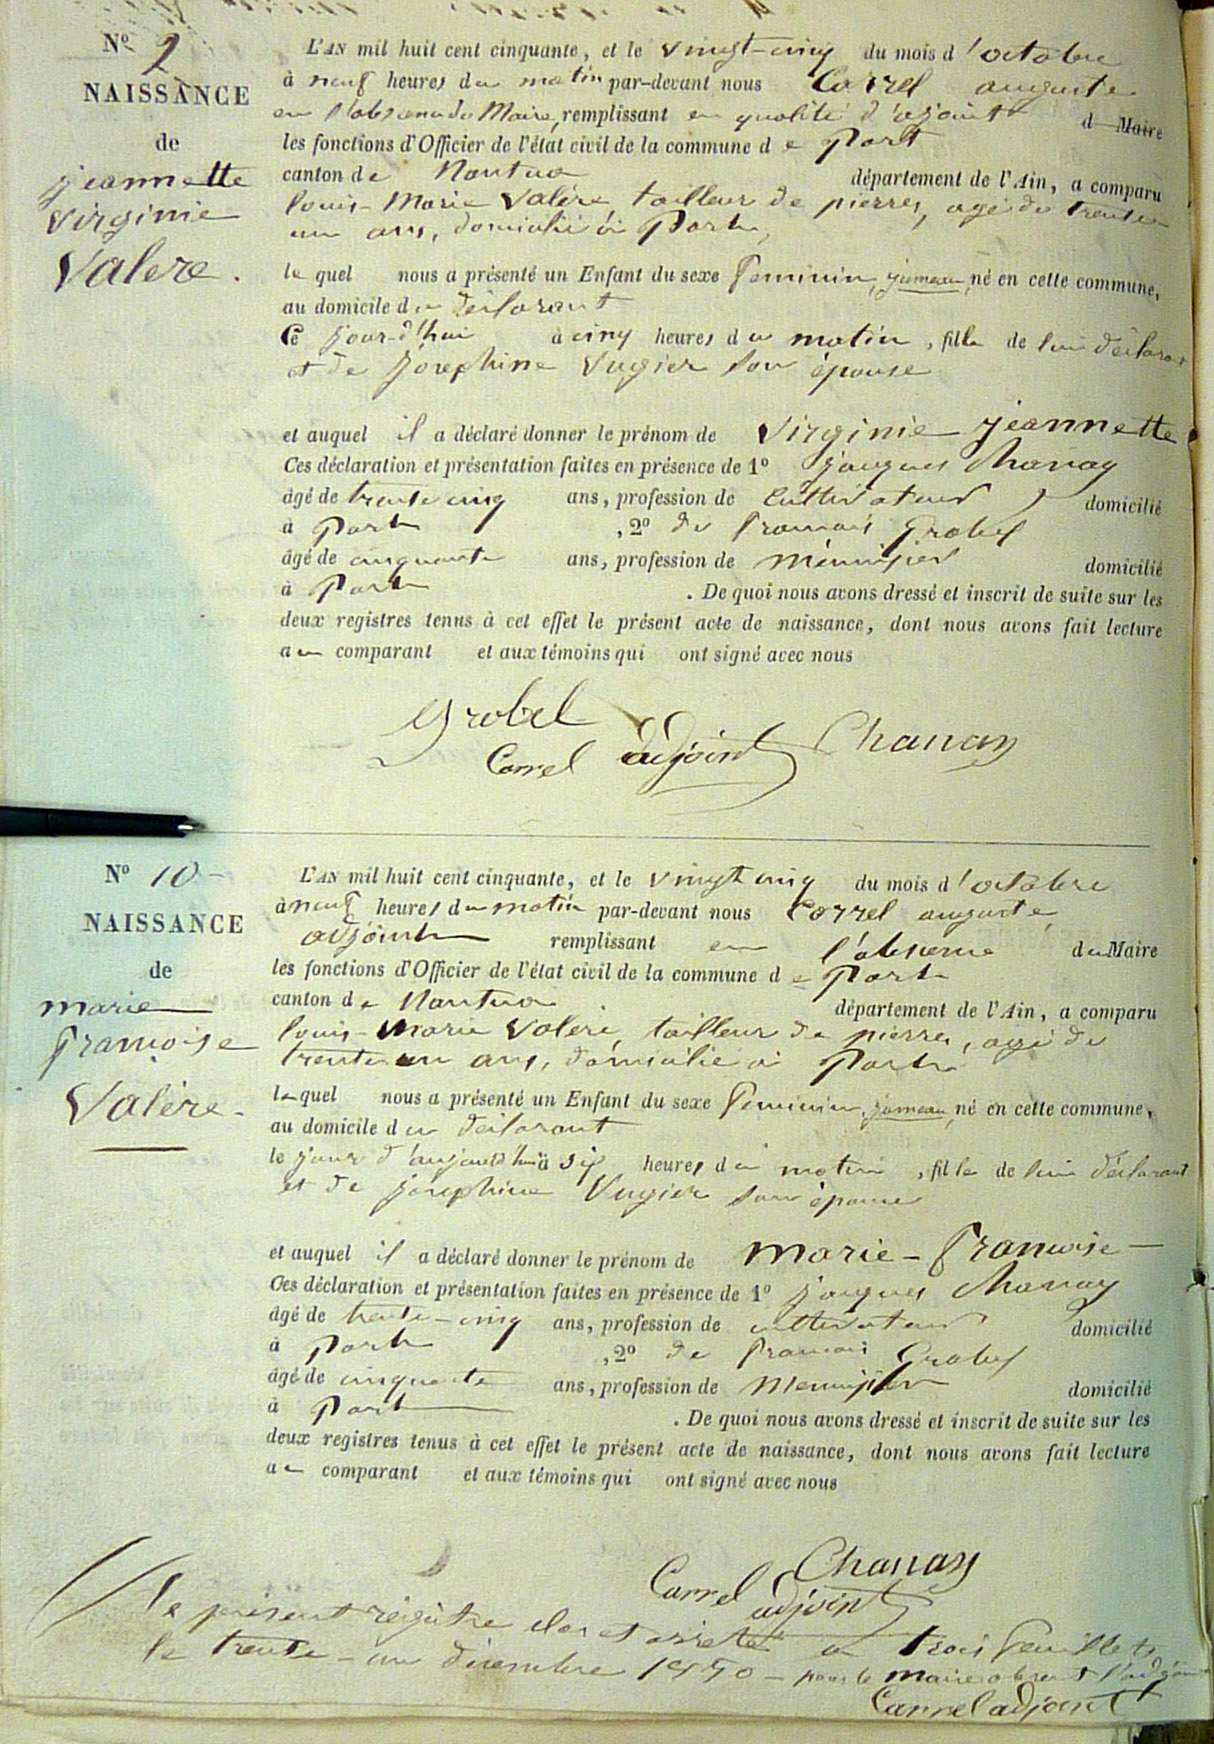 N° 9
NAISSANCE
de
jeannette
virginie
Valere.
L'AN mil huit cent cinquante, et le vingt-cinq du mois d'octobre
à neuf heures du matin par-devant nous Carrel auguste
en l'absence du Maire, remplissant en qualité d'ajoint d Maire
les fonctions d'Officier de l'état civil de la commune de Port
canton de Nantua département de l'Ain, a comparu
louis-Marie Valère, tailleur de pierres, agé de trente
un ans, domicilié à Port,
lequel nous a présenté un Enfant du sexe feminin, jumeau, né en cette commune,
au domicile du declarant
Ce jour-d'hui à cinq heures du matin, fille de lui déclarant
et de Joséphine Vugier son épouse
et auquel il a déclaré donner le prénom de virginie jeannette
Ces déclaration et présentation faites en présence de 1° jacques Chanay
âgé de trente cinq ans, profession de cultivateur domicilié
à Port, 2° de francois Grobel
âgé de cinquante ans, profession de meunijier domicilié
à Port. De quoi nous avons dressé et inscrit de suite sur les
deux registres tenus à cet effet le présent acte de naissance, dont nous avons fait lecture
au comparant et aux témoins qui ont signé avec nous
Grobel
Carrel adjoint Chanay
N° 10
NAISSANCE
de
marie
francoise
Valère.
L'AN mil huit cent cinquante, et le vingt cinq du mois d'octobre
à neuf heures du matin par-devant nous Carrel auguste
adjoint remplissant en l'absence du Maire
les fonctions d'Officier de l'état civil de la commune de Port
canton de Nantua département de l'Ain, a comparu
louis-marie Valère, tailleur de pierres, agé de
trente un ans, domicilié à Port
lequel nous a présenté un Enfant du sexe feminin, jumeau, né en cette commune,
au domicile du declarant
le jour d'aujourd'hui à six heures du matin, fille de lui déclarant
et de josephine Vugier son épouse
et auquel il a déclaré donner le prénom de marie-francoise
Ces déclaration et présentation faites en présence de 1° jacques Chanay
âgé de trente-cinq ans, profession de cultivateur domicilié
à Port, 2° de francois Grobel
âgé de cinquante ans, profession de Meunijier domicilié
à Port. De quoi nous avons dressé et inscrit de suite sur les
deux registres tenus à cet effet le présent acte de naissance, dont nous avons fait lecture
au comparant et aux témoins qui ont signé avec nous
Chanay
Carrel adjoint
le présent régistre clos et arreté a trois feuillets
le trente-un decembre 1850 - pour le maire absent l'adjoint
Carrel adjoint